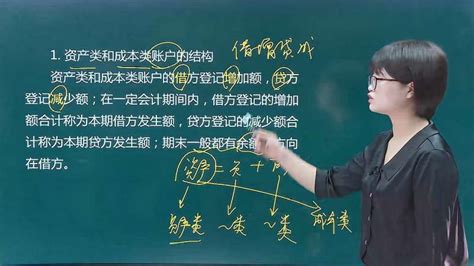 1. 资产类和成本类账户的结构
借增贷减
资产类和成本类账户的借方登记增加额，贷方
登记减少额；在一定会计期间内，借方登记的增加
额合计称为本期借方发生额，贷方登记的减少额合
计称为本期贷方发生额；期末一般都有余额，方向
在借方。
资产 = 负 +
资产类 ~类 ~类 成本类